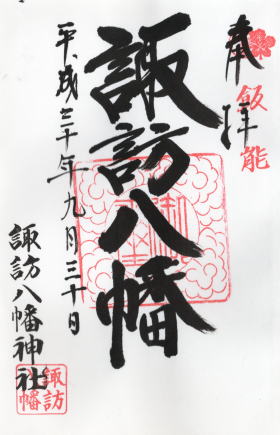 飯能
奉拝
諏訪八幡
平成三十年九月三十日
諏訪八幡神社
諏訪
八幡